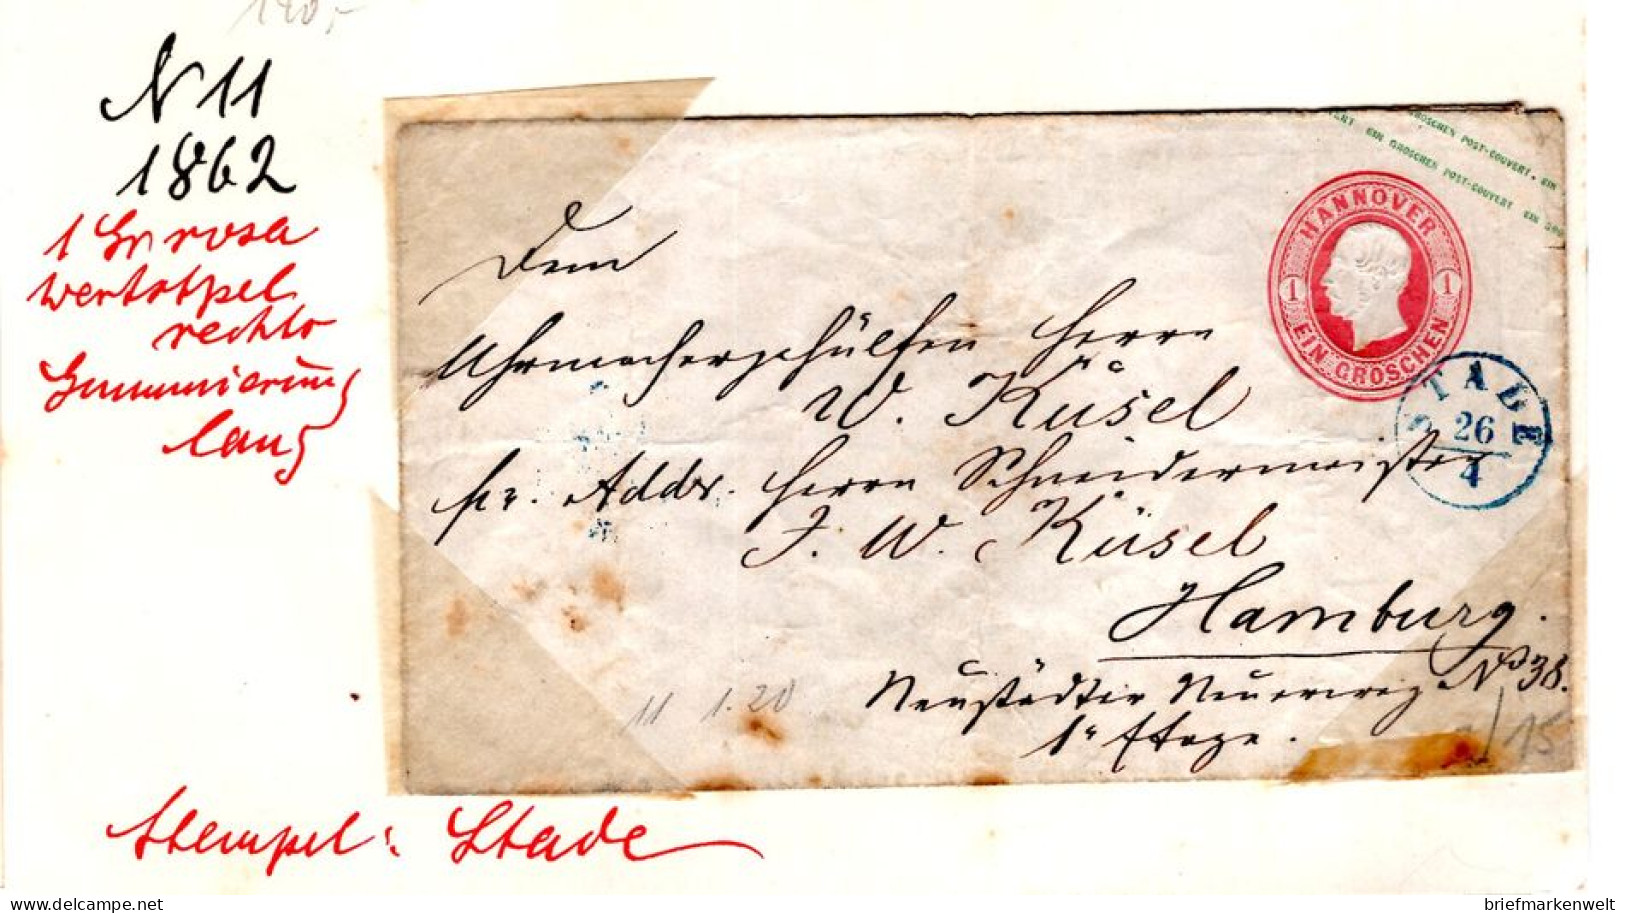 120,-
N 11
1862
1 Gr rosa
Wertstpel
rechts
Gummierung
lang
HANNOVER
1 1
EIN GROSCHEN
GROSCHEN POST-COUVERT. EIN
EIN GROSCHEN POST-COUVERT EIN GRO
STADE
26
4
Dem
Uhrmachergehülfen Herrn
W. Küsel
pr. Addr. Herrn Schneidermeister
J. W. Küsel
Hamburg.
Neustädter Neuerweg No 38.
1te Etage.
11 1.20
15
Stempel: Stade
www.delcampe.net
briefmarkenwelt